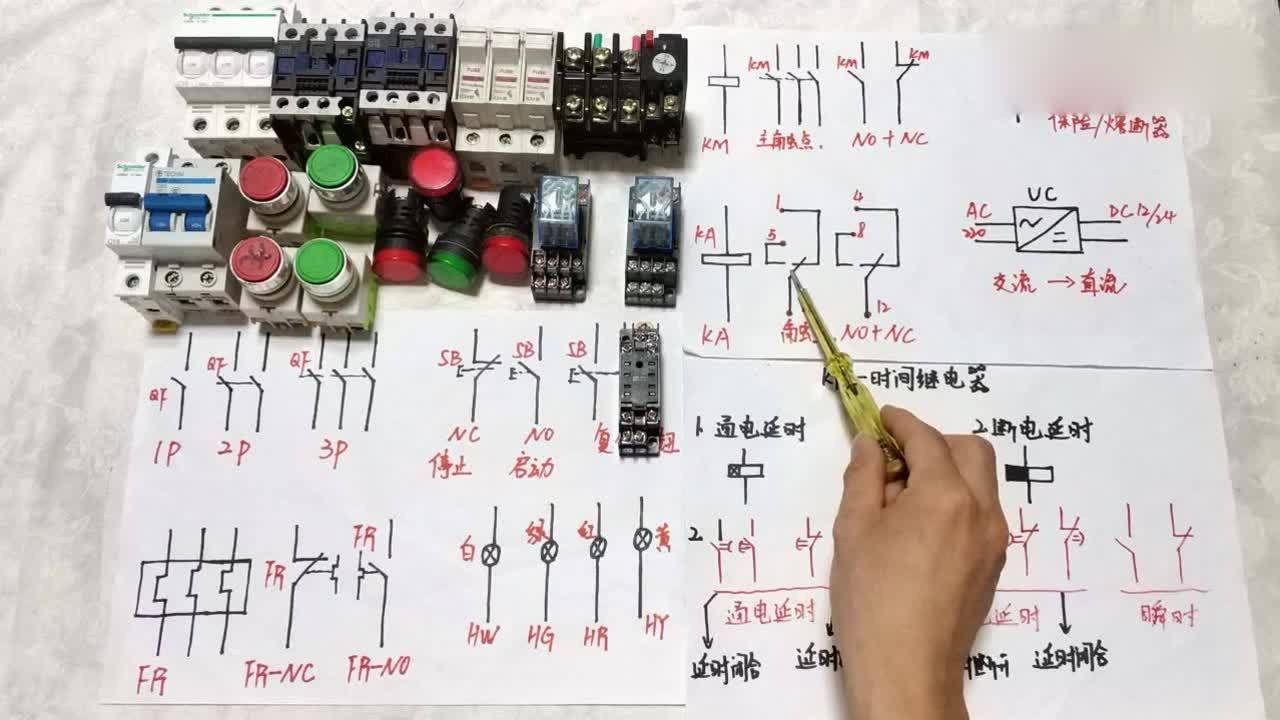 Schneider
FUSE
FUSE
FUSE
Schneider
TECHN
KM
KM
KM
KM
主触点.
NO+NC
保险/熔断器
KA
KA
1
5
4
8
12
触
NO+NC
UC
AC
220
DC 12/24
交流→直流
QF
QF
QF
1P
2P
3P
SB
SB
SB
NC
停止
NO
启动
复
钮
时间继电器
1.通电延时
2.断电延时
2
通电延时
延时
瞬时
延时闭合
延时
断开
延时闭合
FR
FR
FR
FR-NC
FR-NO
白
绿
红
黄
HW
HG
HR
HY